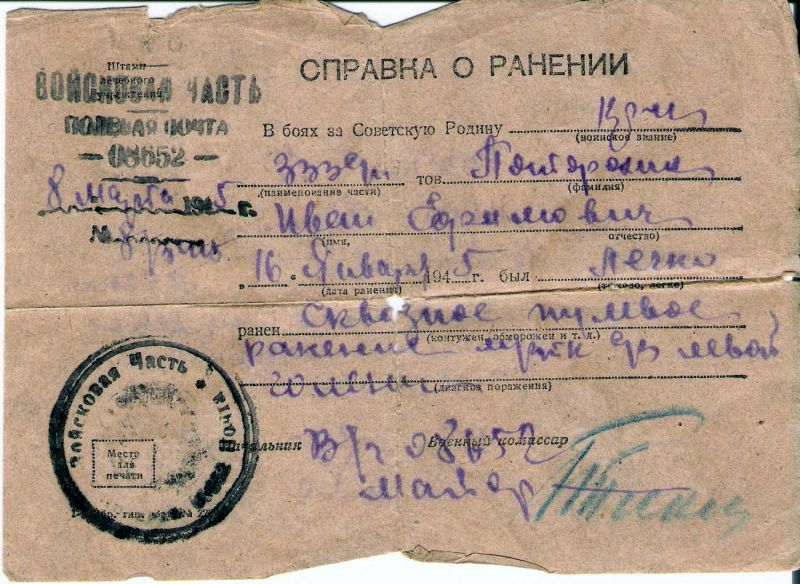 Штамп
лечебного
учреждения
ВОЙСКОВАЯ ЧАСТЬ
ПОЛЕВАЯ ПОЧТА
— 08652 —
8 марта 1945 г.
№
СПРАВКА О РАНЕНИИ
В боях за Советскую Родину
(воинское звание)
тов.
(наименование части) (фамилия)
Иван
(имя, отчество)
16 Января 1945 г. был Легко
(дата ранения) (тяжело, легко)
ранен сквозное пулевое
(контужен, обморожен и т. д.)
ранение левой
голени
(диагноз поражения)
Начальник В/ч 08652 Военный комиссар
майор
Войсковая Часть
Место
для
печати